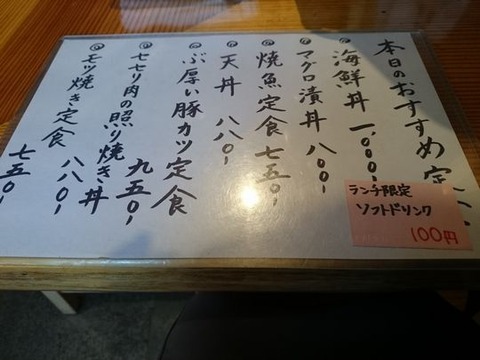 本日のおすすめ定
◎海鮮丼 一、〇〇〇-
◎マグロ漬丼 八〇〇-
◎焼魚定食 七五〇-
◎天丼 八八〇-
◎ぶ厚い豚カツ定食
九五〇-
◎セセリ肉の照り焼き丼
八八〇-
◎モツ焼き定食
七五〇-
ランチ限定
ソフトドリンク
100円